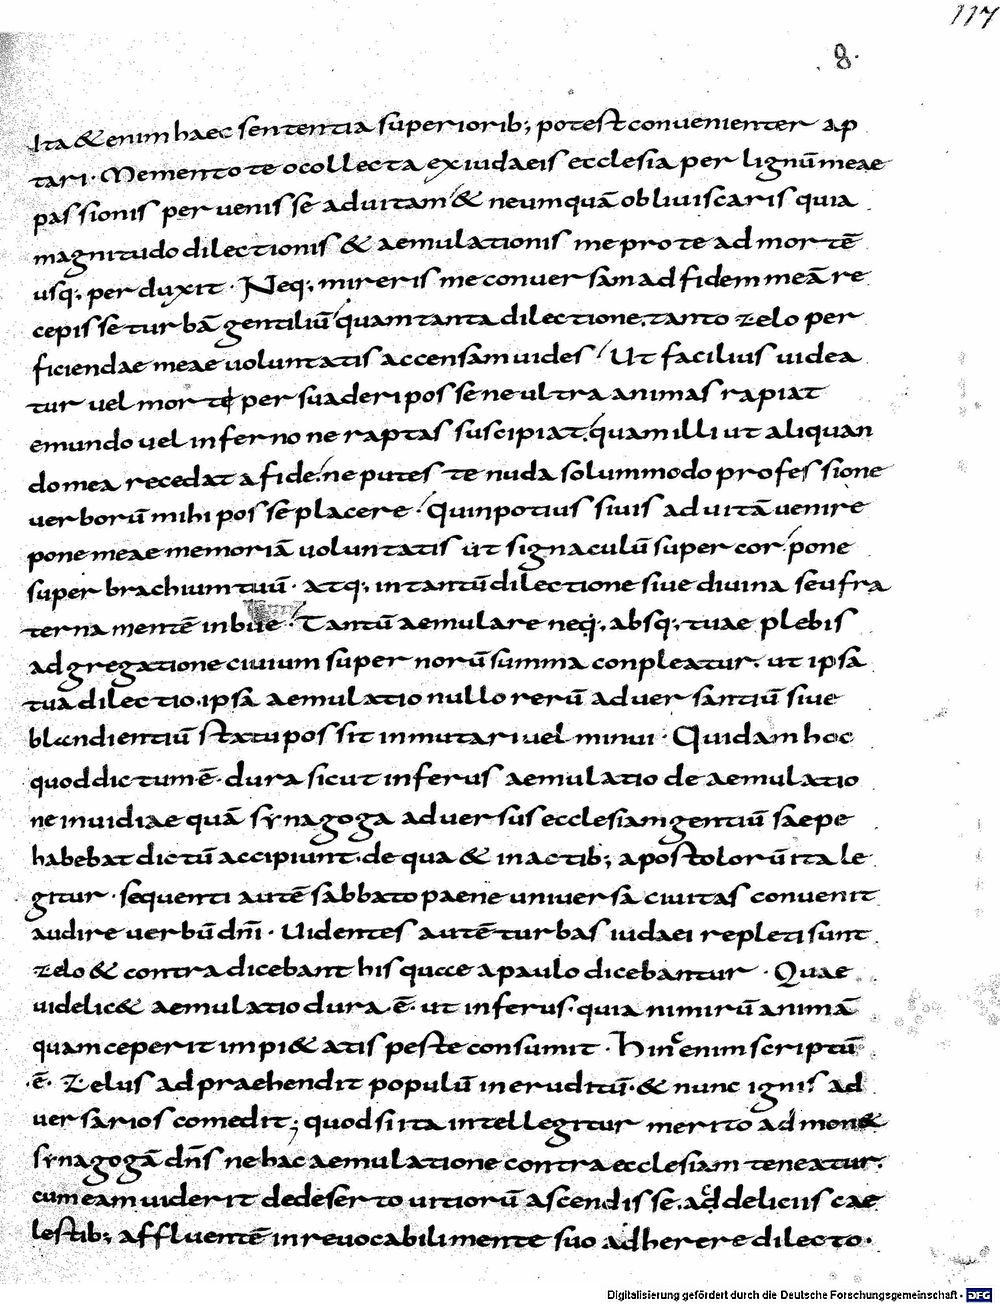 117
8.
Ita & enim haec sententia superiorib; potest conuenienter ap
tari. Memento te o collecta ex iudaeis ecclesia per lignū meae
passionis peruenisse ad uitam & ne umquā obliuiscaris quia
magnitudo dilectionis & aemulationis me pro te ad mortē
usq; perduxit. Neq; mireris me conuersam ad fidem meā re
cepisse turbā gentiliū quam tanta dilectione. tanto zelo per
ficiendae meae uoluntatis accensam uides Ut facilius uidea
tur uel morte persuaderi posse ne ultra animas rapiat
e mundo uel inferno ne raptas suscipiat. quam illi ut aliquan
do mea recedat a fide. ne putes te nuda solummodo professione
uerborū mihi posse placere. Quin potius si uis ad uitā uenire
pone meae memoriā uoluntatis ut signaculū super cor pone
super brachium tuū. atq; in tantū dilectione siue diuina seu fra
terna mentē inbue. Tantū aemulare neq; absq; tuae plebis
adgregatione ciuium supernorū summa conpleatur. ut ipsa
tua dilectio. ipsa aemulatio nullo rerū aduersantiū siue
blandientiū statu possit inmutari uel minui. Quidam hoc
quod dictum ē. dura sicut inferus aemulatio de aemulatio
ne inuidiae quā synagoga aduersus ecclesiam gentiū saepe
habebat dictū accipiunt. de qua & in actib; apostolorū ita le
gitur. sequenti autē sabbato paene uniuersa ciuitas conuenit
audire uerbū dnī. Uidentes autē turbas iudaei repleti sunt
zelo & contradicebant his quae a paulo dicebantur. Quae
uidelic& aemulatio dura. ē. ut inferus. quia nimirū animā
quam ceperit impi&atis peste consumit. Hinc enim scriptū
.ē. Zelus adpraehendit populū ineruditū. & nunc ignis ad
uersarios comedit; quod si ita intellegitur merito admon&
synagogā dn̄s ne hac aemulatione contra ecclesiam teneatur.
cum eam uiderit de deserto uitiorū ascendisse. ac deliciis cae
lestib; affluentē inreuocabili mente suo adherere dilecto.
Digitalisierung gefördert durch die Deutsche Forschungsgemeinschaft - DFG